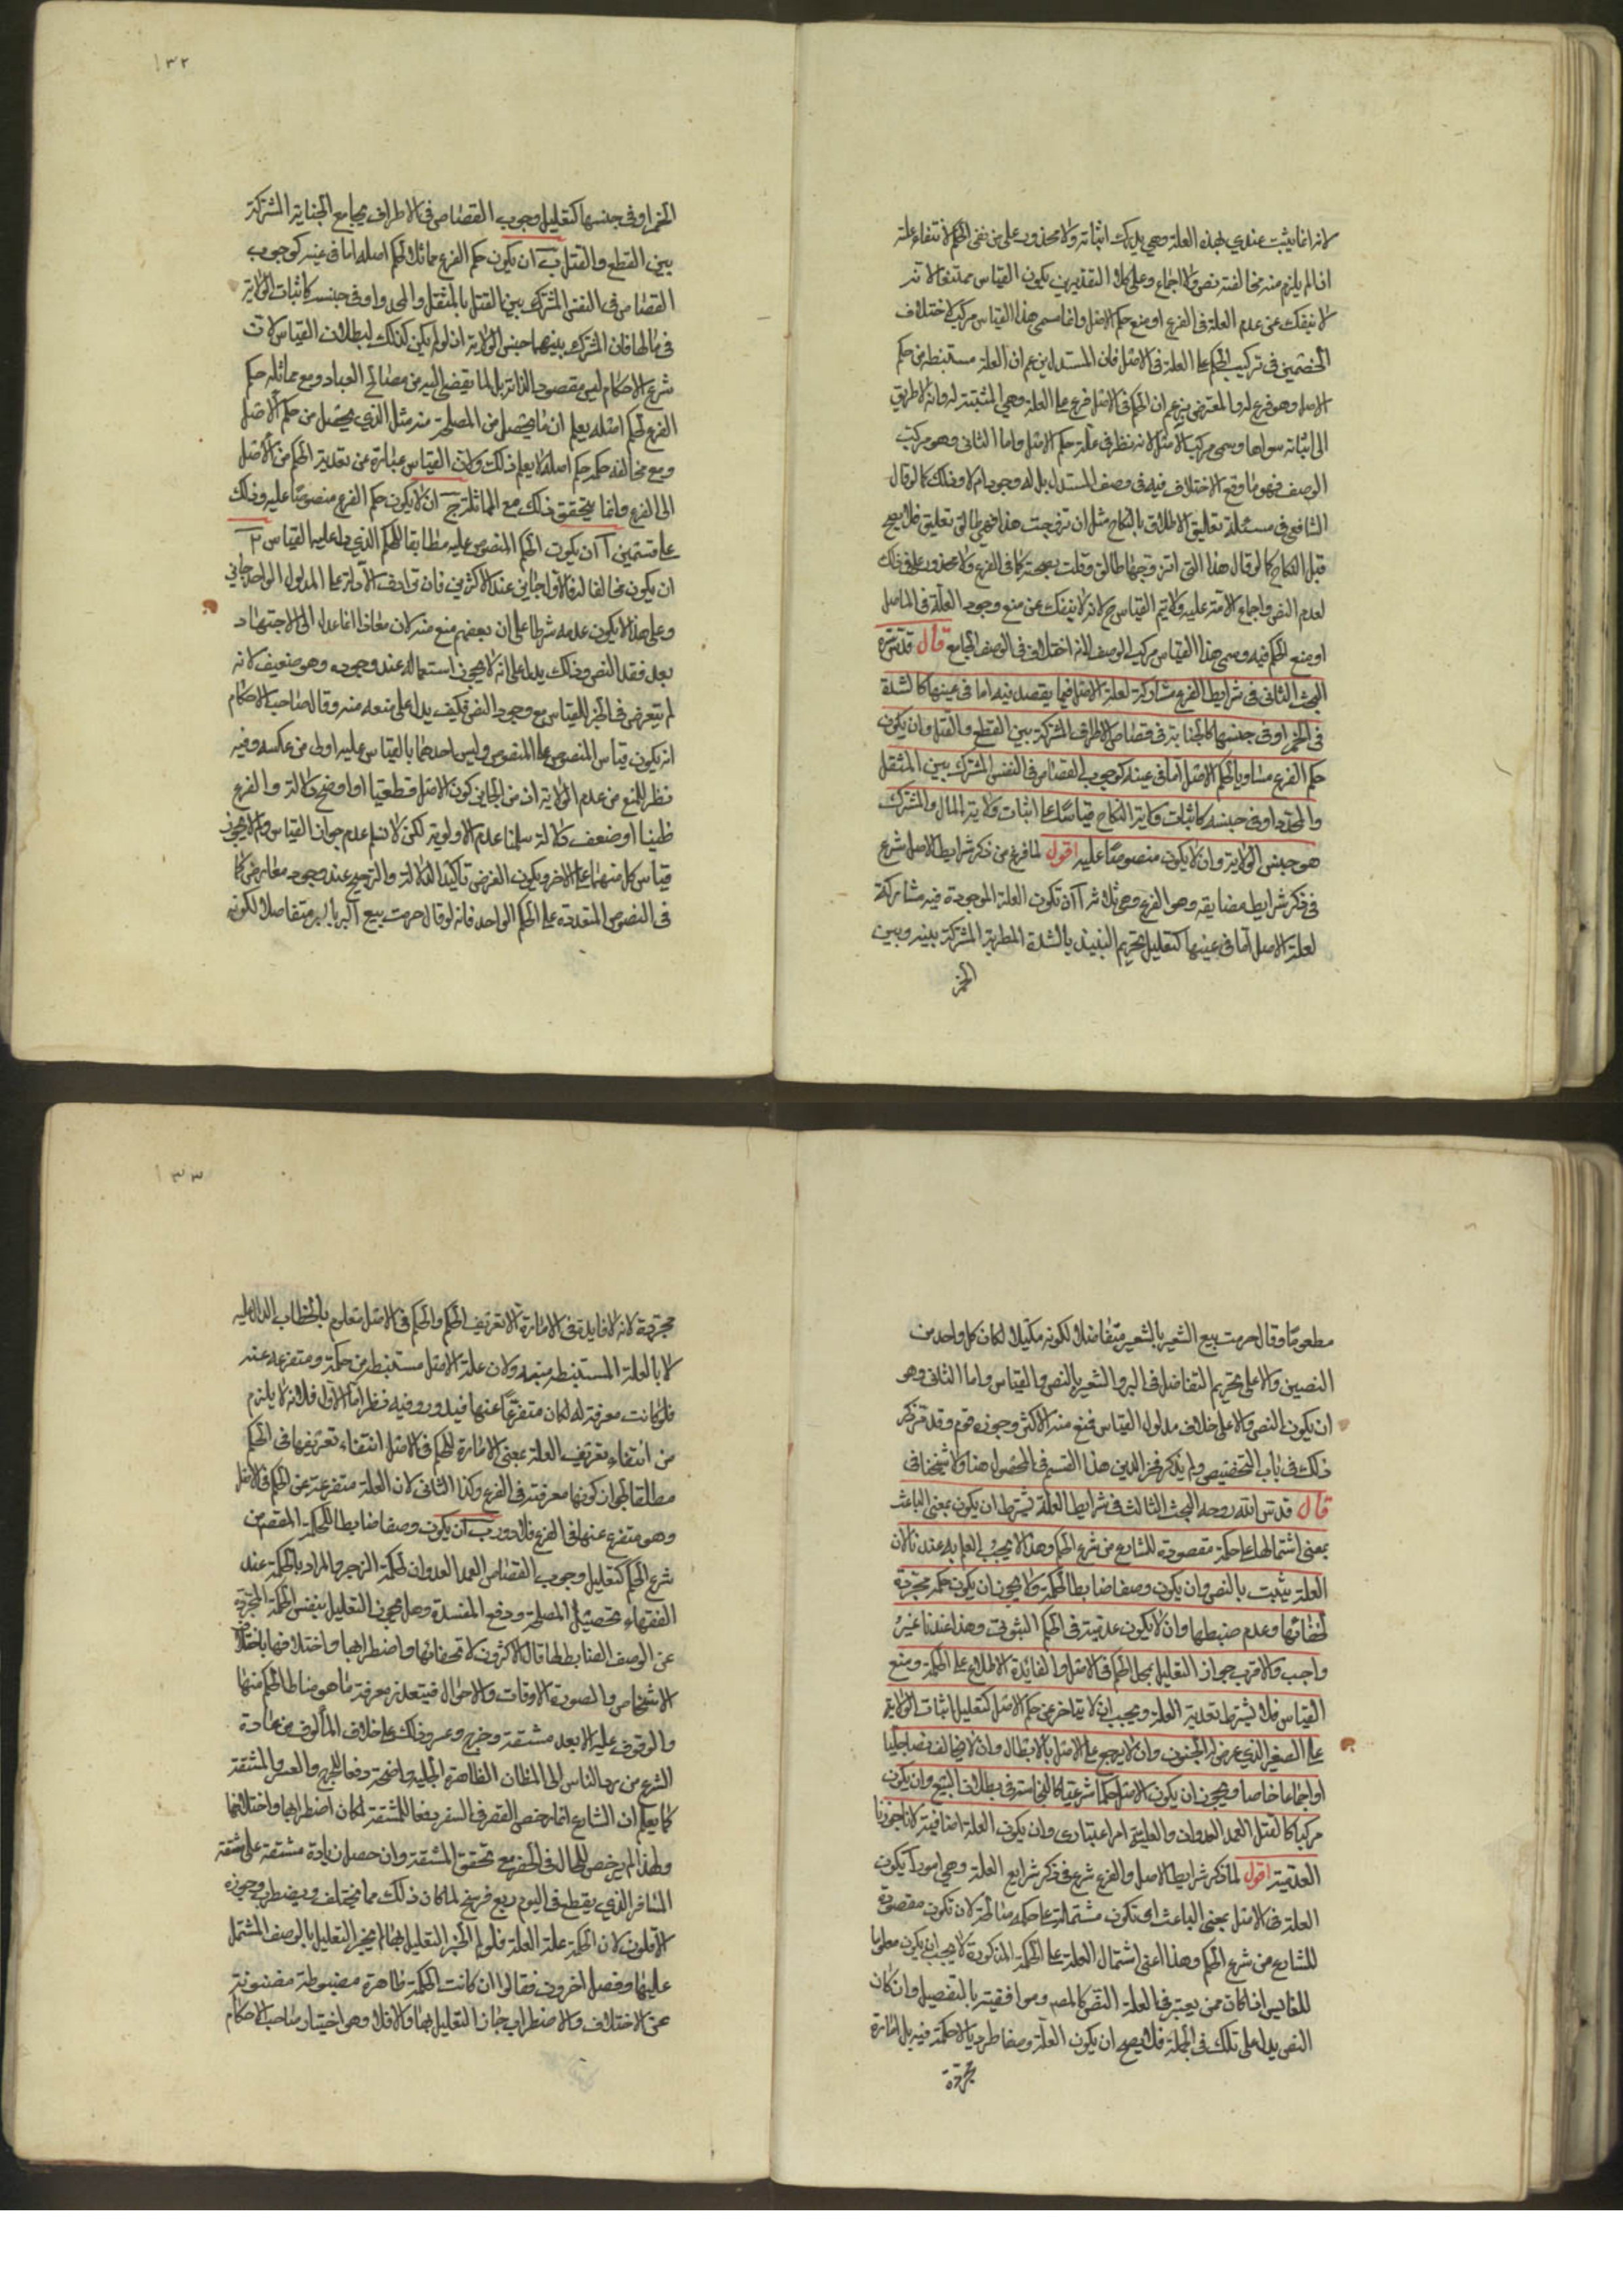 لانه انما يثبت عندي لهذه العلة وهي يدرك اثباته ولا محذور على من نفى الحكم لانتفاء علته
اذا لم يلزم منه مخالفة نص ولا اجماع وعلى كلا التقديرين يكون القياس ممتنعا لانه
لا ينفك عن عدم العلة فى الفرع او منع حكم الاصل وانما سمى هذا القياس مركبا لاختلاف
الخصمين فى تركيب الحكم على العلة فى الاصل فان المستدل يزعم ان العلة مستنبطة من حكم
الاصل وهو فرع له والمعترض يزعم ان الحكم فى الاصل فرع على العلة وهي المثبتة له وانه لا طريق
الى اثباته سواها وسمى مركب الاصل لانه نظر فى علة حكم الاصل واما الثانى وهو مركب
الوصف فهو ما وقع الاختلاف فيه فى وصف المستدل بل له وجود ام لا وذلك كما لو قال
الشافعى فى مسئلة تعاليق الاطلاق بالنكاح مثل ان تزوجت هذا فهي طالق تعليق فلا يصح
قبل النكاح كما لو قال هذا التى اتزوجها طالق وقلت بصحته كما فى الفرع ولا محذور على فى ذلك
لعدم النص واجماع الامة عليه ولا يتم القياس ح لانه لا ينفك عن منع وجود العلة فى الاصل
او منع الحكم فيه وسمى هذا القياس مركب الوصف لانه اختلاف فى الوصف الجامع قال قدس سره
البحث الثانى فى شرايط الفرع مشاركة لعلة الاصل فيما يقصد فيه اما فى عينها كالشدة
فى الخمر او فى جنسها كالجناية فى قصاص الاطراف المشتركة بين القطع والقتل وان يكون
حكم الفرع مساويا لحكم الاصل اما فى عينه كوجوب القصاص فى النفس المشترك بين المثقل
والمحدد او فى جنسه كاثبات ولاية النكاح قياسا على اثبات ولاية المال والمشترك
هو جنس الولاية وان لا يكون منصوصا عليه اقول لما فرغ من ذكر شرايط الاصل شرع
فى ذكر شرايط مضايفه وهو الفرع وهي ثلاثة آ ان تكون العلة الموجودة فيه مشاركة
لعلة الاصل اما فى عينها كتعليل تحريم النبيذ بالشدة المطربة المشتركة بينه وبين
الخمر
١٣٢
الخمر او فى جنسها كتعليل وجوب القصاص فى الاطراف بجامع الجناية المشتركة
بين القطع والقتل ب ان يكون حكم الفرع مماثلا لحكم اصله اما فى عينه كوجوب
القصاص فى النفس المشترك بين القتل بالمثقل والمحدد او فى جنسه كاثبات الولاية
فى مالها فان المشترك بينهما جنس الولاية اذ لو لم يكن كذلك لبطلان القياس لان
شرع الاحكام ليس مقصودا لذاته بل لما يفضى اليه من مصالح العباد ومع مماثلة حكم
الفرع لحكم اصله يعلم ان ما يحصل من المصلحة منه مثل الذي يحصل من حكم الاصل
ومع مخالفة حكمه حكم اصله لا يعلم ذلك ولان القياس عبارة عن تعدية الحكم من الاصل
الى الفرع وانما يتحقق ذلك مع المماثلة ج ان لا يكون حكم الفرع منصوصا عليه وذلك
على قسمين آ ان يكون الحكم المنصوص عليه مطابقا للحكم الذي دل عليه القياس ٢
ان يكون مخالفا له فالاول جايز عند الاكثرين فان ترادف الادلة على المدلول الواحد جايز
وعلى هذا لا يكون عدمه شرطا على ان بعضهم منع منه لان معاذا انما عدل الى الاجتهاد
بعد فقد النص وذلك يدل على انه لا يجوز استعماله عند وجوده وهو ضعيف لانه
لم يتعرض فى الخبر للقياس مع وجود النص فكيف يدل على منعه منه وقال صاحب الاحكام
انه يكون قياس المنصوص على المنصوص وليس احدهما بالقياس عليه اولى من عكسه وفيه
نظر للمنع من عدم الاولوية اذ من الجايز كون الاصل قطعيا او اوضح دلالة والفرع
ظنيا او ضعف دلالة سلمنا عدم الاولوية لكن لا نسلم عدم جواز القياس ولم لا يجوز
قياس كل منهما على الاخر ويكون الغرض تاكيد الدلالة والترجيح عند وجود معارض كما
فى النصوص المتعددة على الحكم الواحد فانه لو قال حرمت بيع البر بالبر متفاضلا لكونه
مطعوما وقال حرمت بيع الشعير بالشعير متفاضلا لكونه مكيلا لكان كل واحد من
النصين دالا على تحريم التفاضل فى البر والشعير بالنص والقياس واما الثانى وهو
ان يكون النص دالا على خلاف مدلول القياس فمنع منه الاكثر وجوزه قوم وقد تقرر ذكر
ذلك فى باب التخصيص ولم يذكر فخر الدين هذا القسم فى المحصول هنا ولا شيخنا فى
قال قدس الله روحه البحث الثالث فى شرايط العلة يشترط ان يكون بمعنى الباعث
بمعنى اشتمالها على حكمة مقصودة للشارع من شرع الحكم وهذا لا يجب العلم به عندنا لان
العلة يثبت بالنص وان يكون وصفا ضابطا لحكمة ولا يجوز ان يكون حكمة مجردة
لخفائها وعدم ضبطها وان لا يكون عدمية فى الحكم الثبوتى وهذا عندنا غير
واجب والاقرب جواز التعليل بمحل الحكم فى الاصل والفائدة الاطلاع على الحكمة ومنع
القياس فلا يشترط تعدية العلة ويجب ان لا يتاخر عن حكم الاصل كتعليل اثبات الولاية
على الصغير الذي عرض له الجنون وان لا يرجع على الاصل بالابطال وان لا يخالف نصا جليا
او اجماعا خاصا ويجوز ان يكون الاصل حكما شرعيا كالنجاسة فى بطلان البيع وان يكون
مركبا كالقتل العمد العدوان والعلية امر اعتبارى وان يكون العلة اضافية كما جوزنا
العدمية اقول لما ذكر شرايط الاصل والفرع شرع فى ذكر شرايع العلة وهي امور آ يكون
العلة فى الاصل بمعنى الباعث اى تكون مشتملة على حكمة صالحة لان تكون مقصودة
للشارع من شرع الحكم وهذا اعنى اشتمال العلة على الحكمة المذكورة لا يجب ان يكون معلوما
للقايس اذا كان ممن يعتبر فى العلة النص كالمصم وموافقيه بالتفصيل وان كان
النص يدل على تلك فى الجملة فلا يصح ان يكون العلة وصفا طرديا لا حكمة فيه بل امارة
مجردة
١٣٣
مجردة لانه لا فايدة فى الامارة الا تعريف الحكم والحكم فى الاصل معلوم بالخطاب الدال عليه
لا بالعلة المستنبطة منه ولان علة الاصل مستنبطة من حكمه ومتفرعة عنه
فلو كانت معرفة له لكان متفرعا عنها فيدور وفيه نظر اما الاول فلانه لا يلزم
من انتفاء تعريف العلة بمعنى الامارة للحكم فى الاصل انتفاء تعريفها فى الحكم
مطلقا لجواز كونها معرفة فى الفرع وكذا الثانى لان العلة متفرعة عن الحكم فى الاصل
وهو متفرع عنها فى الفرع فلا دور ب ان يكون وصفا ضابطا للحكمة المقصودة من
شرع الحكم كتعليل وجوب القصاص العمد العدوان لحكمة الزجر والمراد بالحكمة عند
الفقهاء تحصيل المصلحة ودفع المفسدة وهل يجوز التعليل بنفس الحكمة المجردة
عن الوصف الضابط لها قال الاكثرون لا لخفائها واضطرابها واختلافها باختلاف
الاشخاص والصورة الاوقات والاحوال فيتعذر معرفة ما هو مناط الحكم منها
والوقوف عليه الا بعد مشقة وحرج وعسر وذلك على خلاف المألوف من عادة
الشرع من رد الناس الى المظان الظاهرة الجلية واضحة دفعا للحرج والعسر والمشقة
كما يعلم ان الشارع انما رخص القصر فى السفر دفعا للمشقة لكان اضطرابها واختلافها
ولهذا لم يرخص للحمال فى الحضر مع تحقق المشقة وان حصل زيادة مشقة على مشقة
المسافر الذي يقطع فى اليوم ربع فرسخ لما كان ذلك مما يختلف ويضطرب وجوزه
الاقلون لان الحكمة علة العلة فلو لم يجز التعليل بها لم يجز التعليل بالوصف المشتمل
عليها وفصل اخرون فقالوا ان كانت الحكمة ظاهرة مضبوطة مضنونة
عن الاختلاف والاضطراب جاز التعليل بها والا فلا وهو اختيار صاحب الاحكام